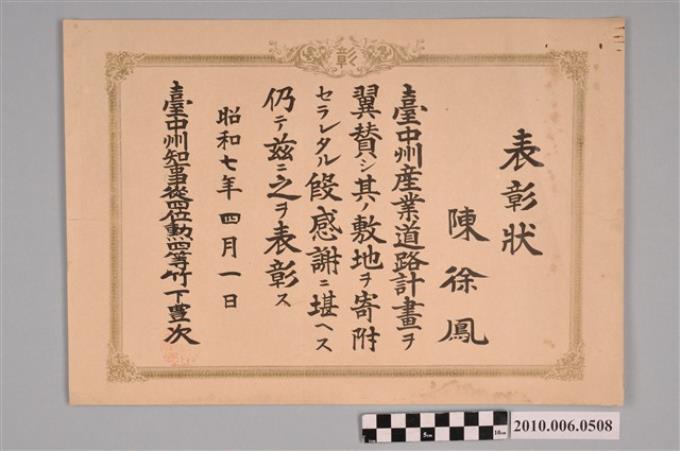 彰
表彰狀
陳徐鳳
臺中州産業道路計畫ヲ
翼賛シ其ノ敷地ヲ寄附
セラレタル段感謝ニ堪ヘス
仍テ茲ニ之ヲ表彰ス
昭和七年四月一日
臺中州知事從四位勳四等竹下豊次
5cm
10cm
2010.006.0508